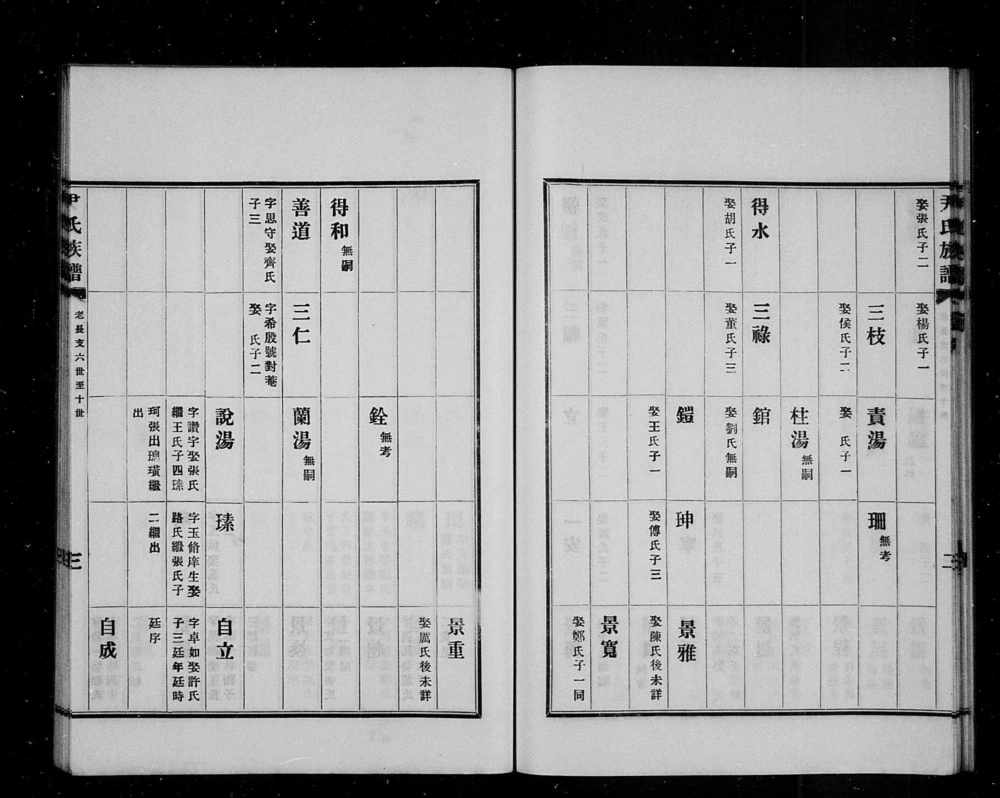 尹氏族譜
二
娶張氏子二
娶楊氏子一
三枝
責湯
珊 無考
娶侯氏子二
娶 氏子一
柱湯 無嗣
得水
三祿
錧
娶胡氏子一
娶董氏子三
娶劉氏無嗣
鎧
珅
景雅
娶王氏子一
娶傅氏子三
娶陳氏後未詳
景寬
娶鄭氏子一同
景重
娶厲氏後未詳
銓 無考
得和 無嗣
善道
三仁
蘭湯 無嗣
字思守娶齊氏
子三
字希殷號對菴
娶 氏子二
說湯
瑧
自立
字讃字娶張氏
繼王氏子四瑧
字玉脩庠生娶
路氏繼張氏子
字卓如娶許氏
子三廷年廷時
珂張出瑰璜繼
出
二繼出
廷序
自成
尹氏族譜
老長支六世至十世
三